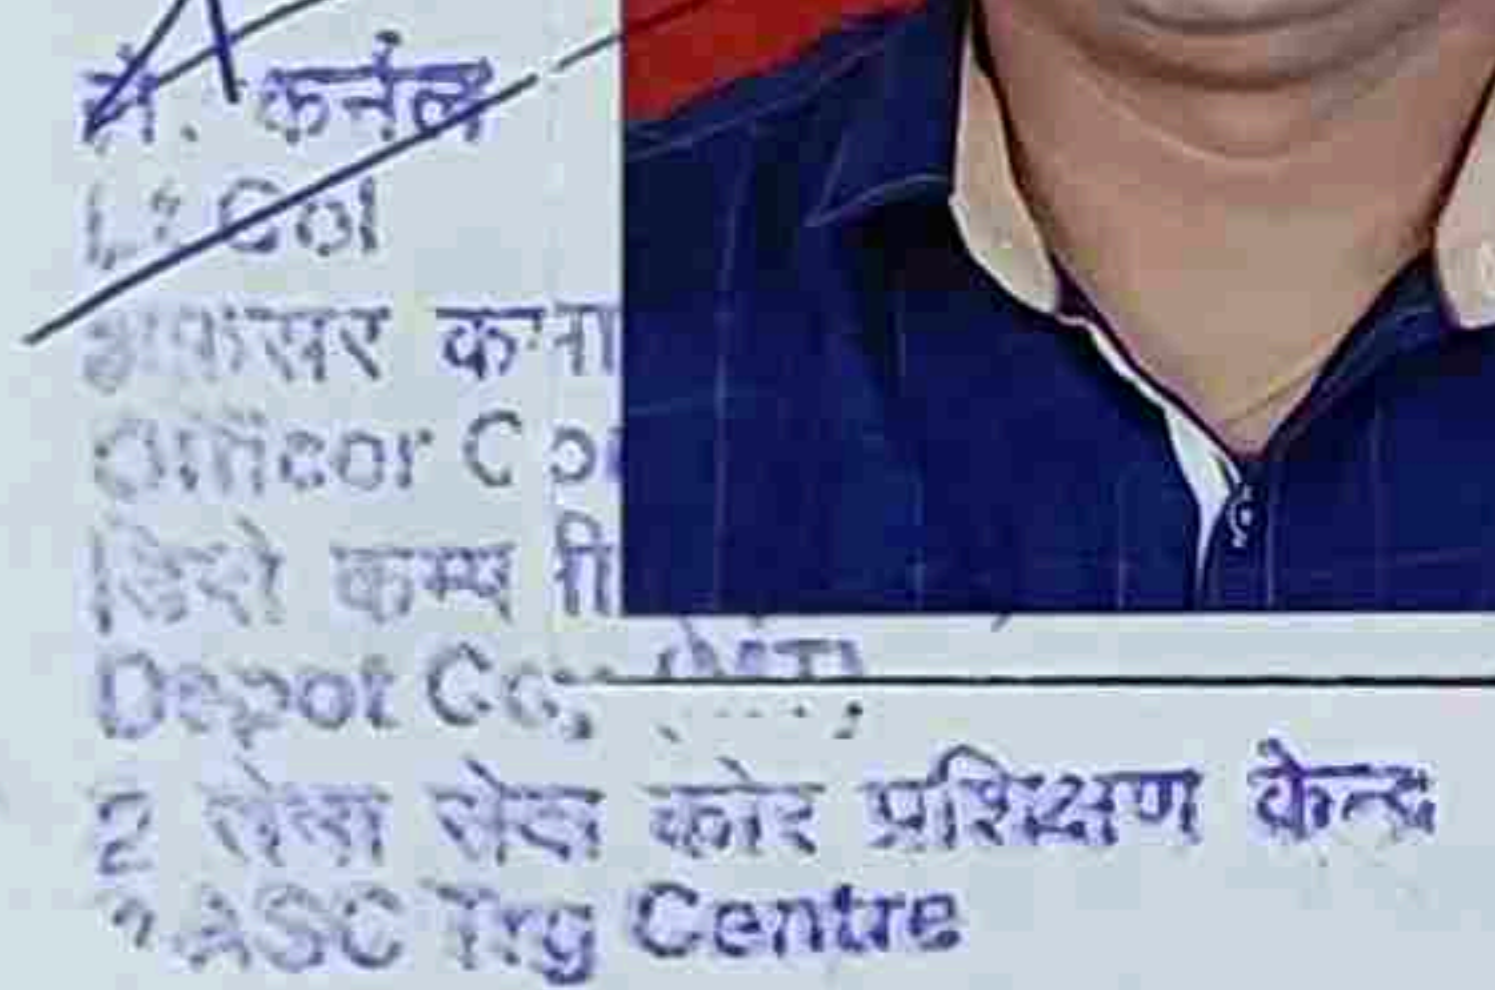 ले. कर्नल
Lt Col
अफसर
Officer
डिपो कम्पनी
Depot Coy
2 सेना सेवा कोर प्रशिक्षण केन्द्र
2 ASC Trg Centre